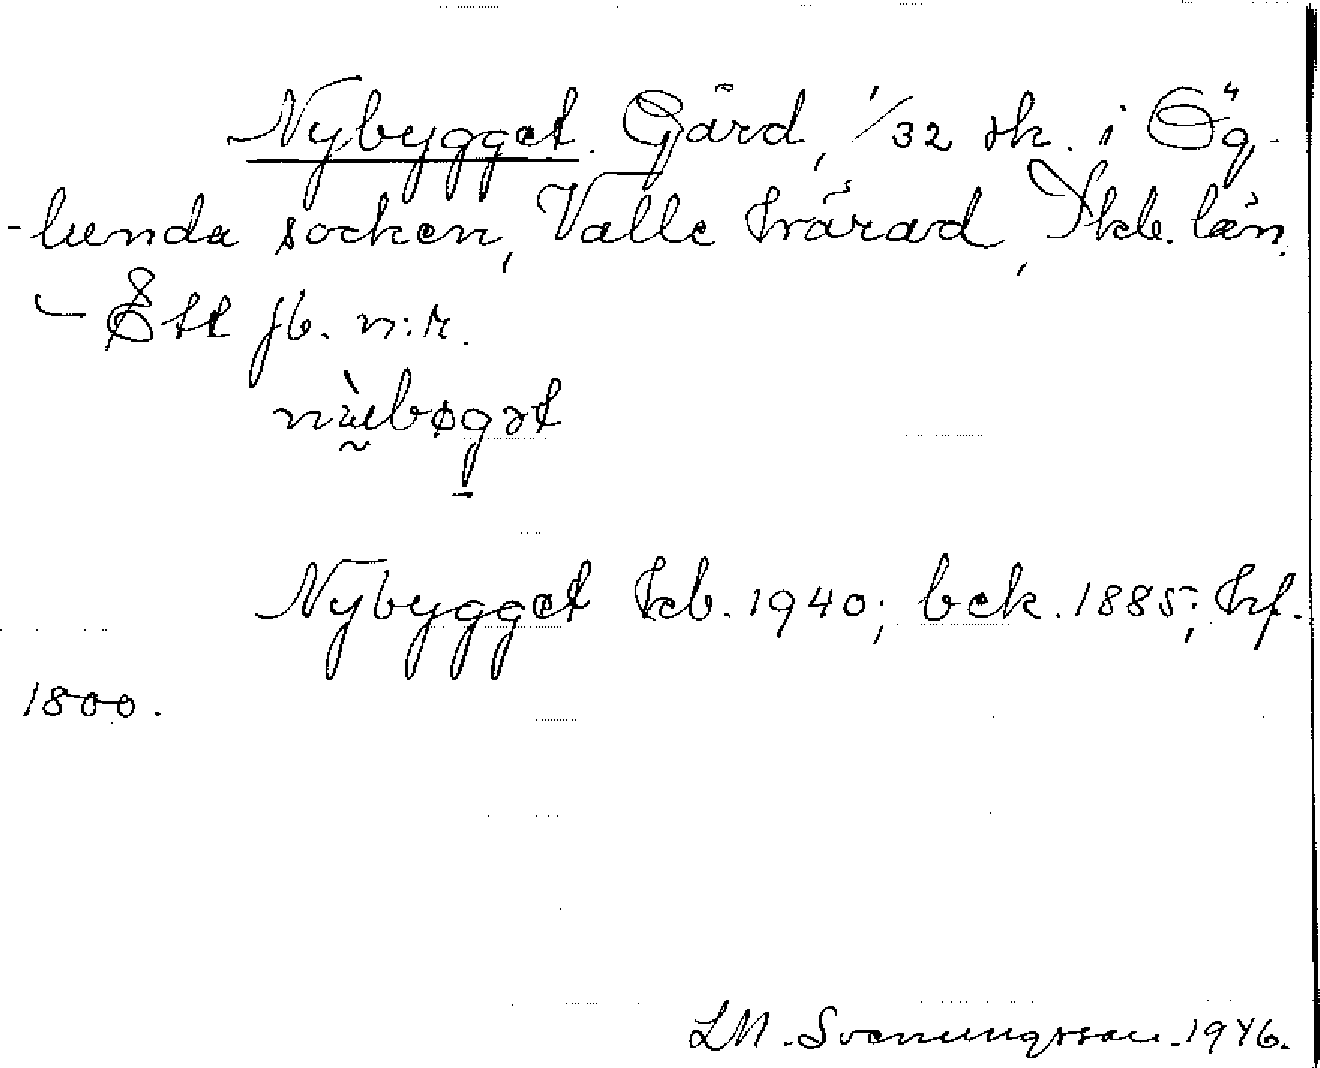 Nybygget. Gård, 1/32 sk. i Ög-
-lunda socken, Valle härad, Skb. län.
– Ett jb. n:r.
Nybygget kb. 1940; bek. 1885; hf.
1800.
LM. Svenungsson. 1946.